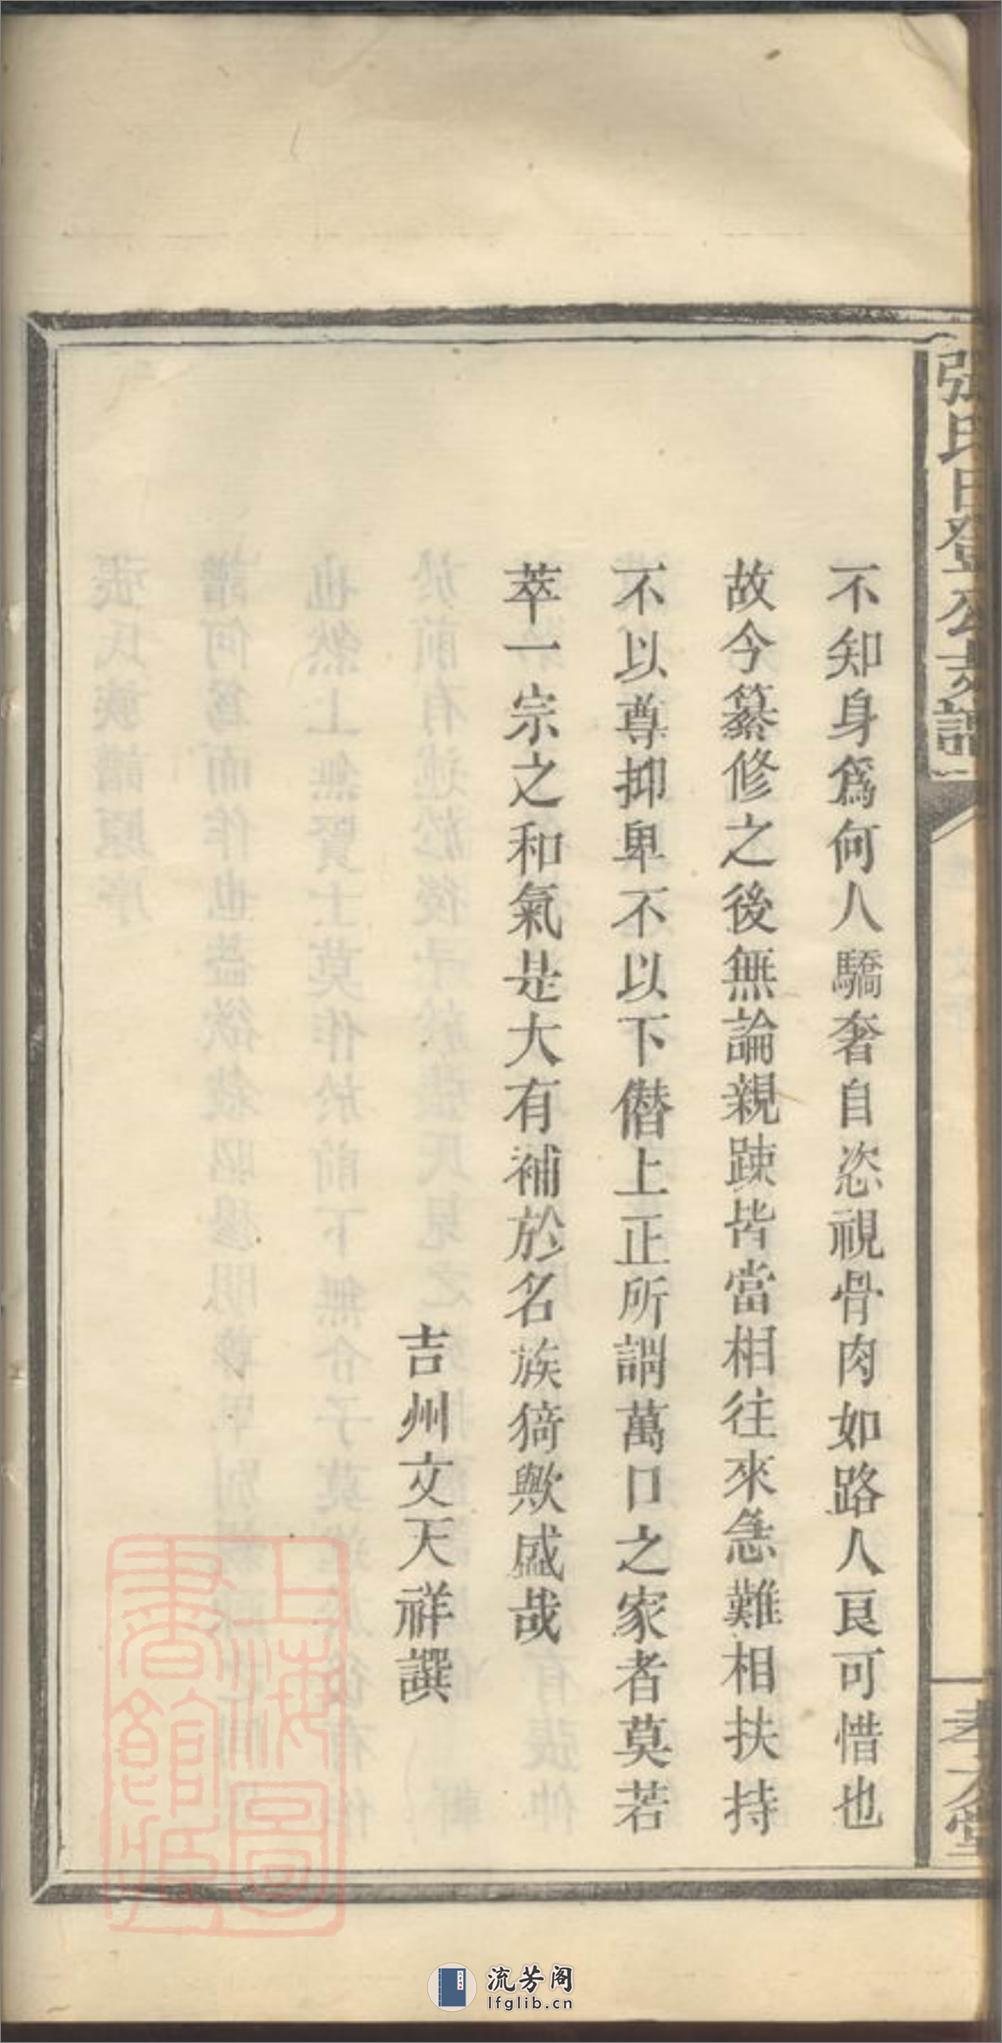 張氏日登公支譜
孝友堂
不知身爲何人驕奢自恣視骨肉如路人良可惜也
故今纂修之後無論親踈皆當相往來急難相扶持
不以尊抑卑不以下僭上正所謂萬口之家者莫若
萃一宗之和氣是大有補於名族猗歟盛哉
吉州文天祥譔
上海圖
書館藏
流芳阁
lfglib.cn